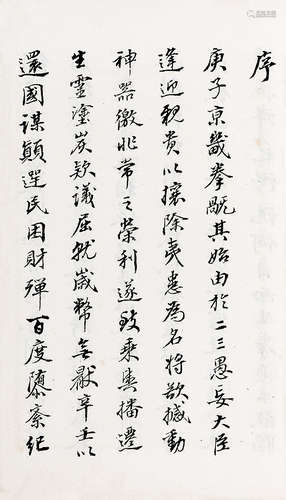 序
庚子京畿拳亂其始由於二三愚妄大臣
逢迎親貴以攘除夷患為名將欲撼動
神器徼非常之榮利遂致乘輿播遷
生靈塗炭欵議屈就歲幣無厭辛壬以
還國謀顛民困財殫百度隳紊紀